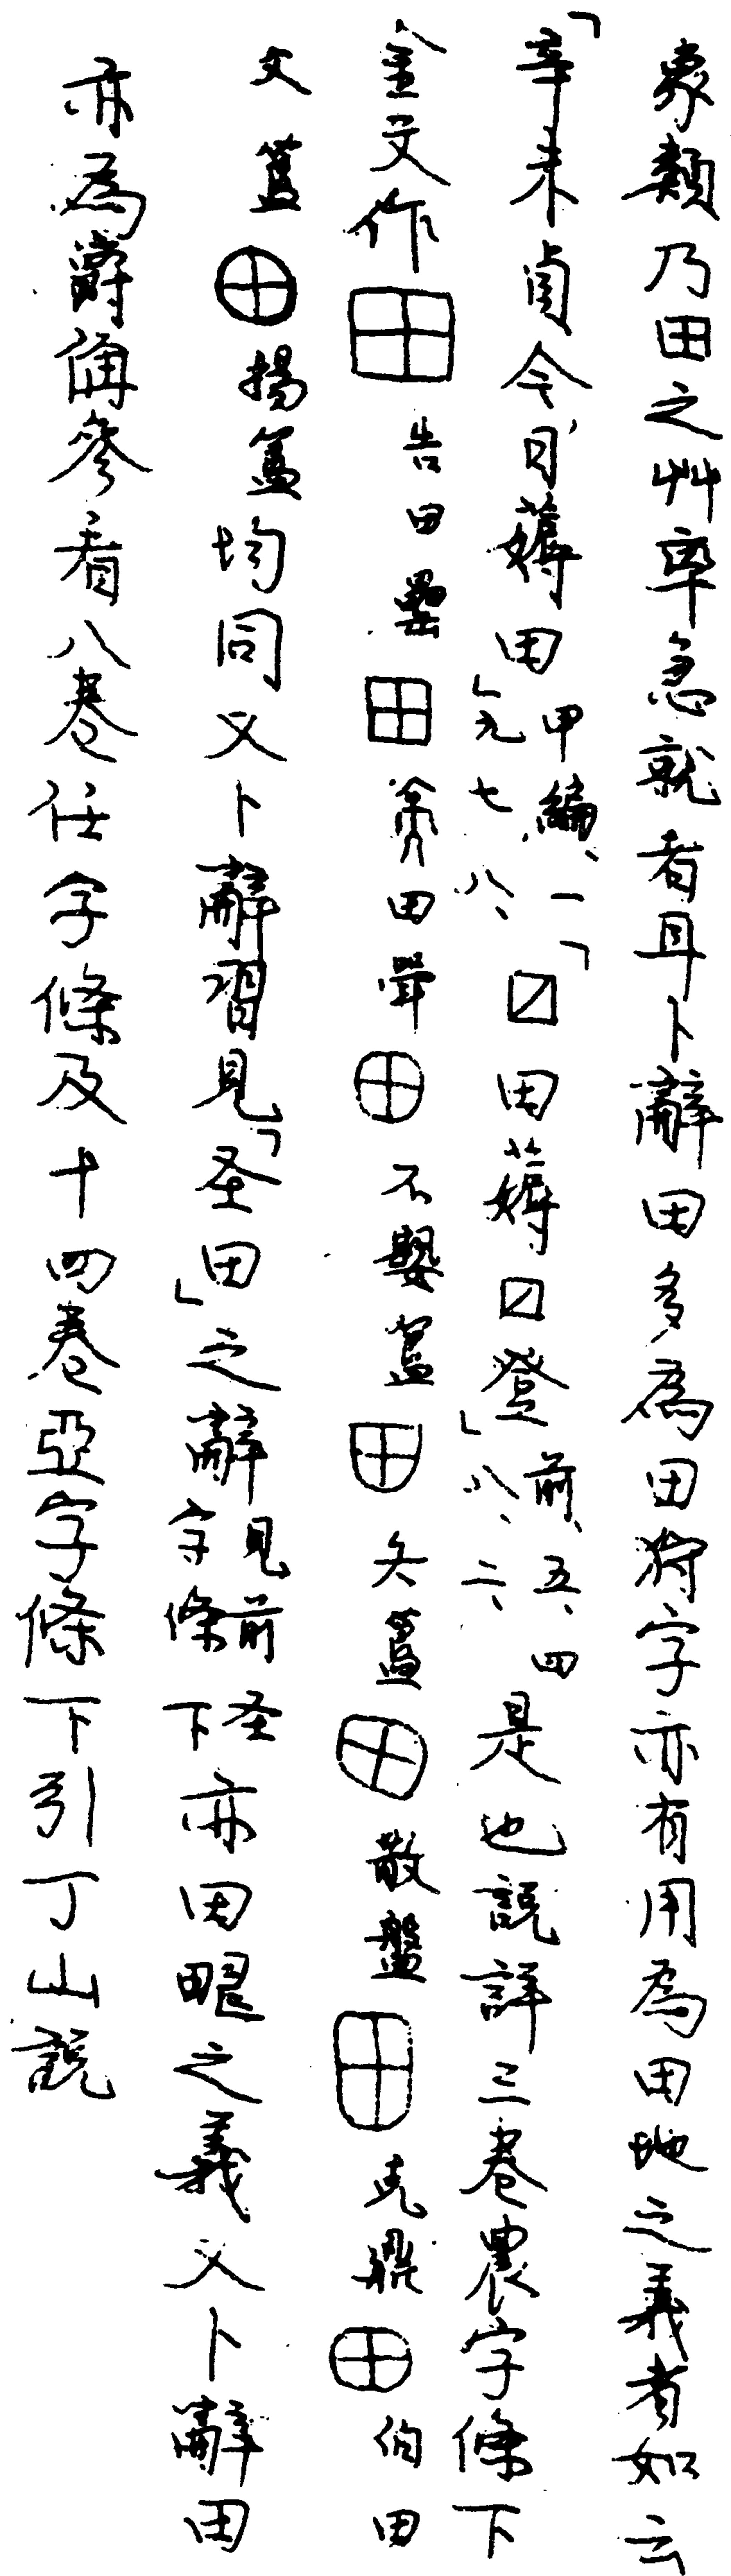 象類乃田之艸率急就者耳卜辭田多為田狩字亦有用為田地之義者如云
「辛未貞今日薅田」甲編、一九七八、「囗田薅囗登」前、五、四八、二、是也說詳三卷農字條下
金文作田告田罍田田田不𡢁簋田簋田散盤田克鼎田伯田
父簋田揚簋均同又卜辭習見「圣田」之辭見前圣字條下亦田畯之義又卜辭田
亦為爵偁參看八卷任字條及十四卷亞字條下引丁山說